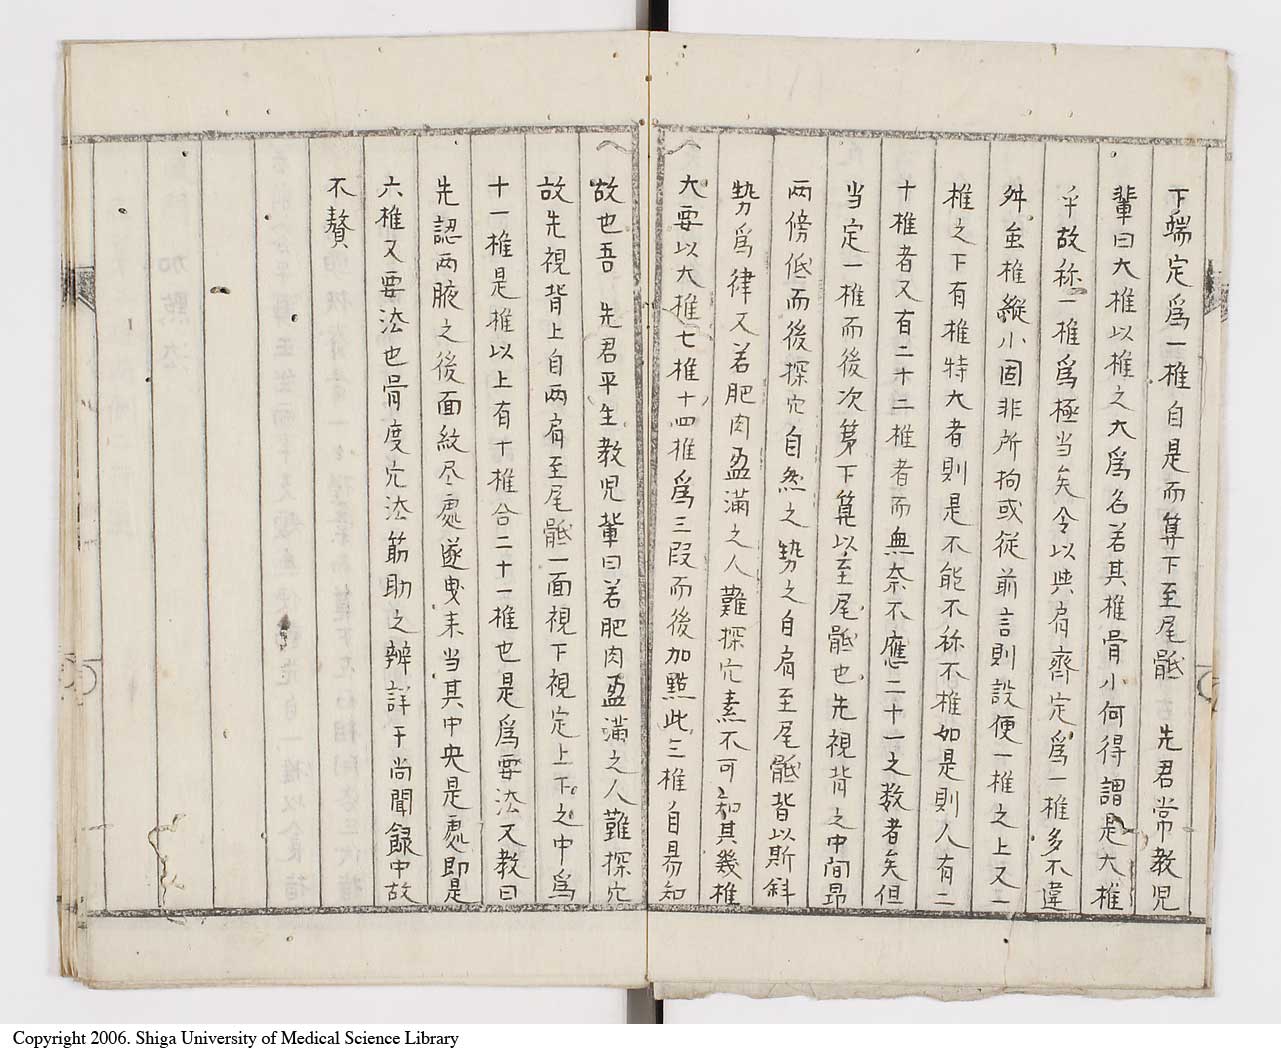 下端定爲一椎自是而算下至尾骶 先君常教児
輩曰大椎以椎之大爲名若其椎骨小何得謂是大椎
乎故称一椎爲極当矣今以与肩齊定爲一椎多不違
舛虽椎縦小固非所拘或従前言則設便一椎之上又一
椎之下有椎特大者則是不能不称不椎如是則人有二
十椎者又有二十二椎者而無奈不應二十一之数者矣但
当定一椎而後次第下算以至尾骶也先視背之中間昂
两傍低而後探穴自然之勢之自肩至尾骶皆以斯斜
勢爲律又若肥肉盈满之人難探穴素不可知其幾椎
大要以大椎七椎十四椎爲三段而後加點此三椎自易知
故也吾 先君平生教児輩曰若肥肉盈满之人難探穴
故先視背上自两肩至尾骶一面視下視定上下之中爲
十一椎是椎以上有十椎合二十一椎也是爲要法又教曰
先認两腋之後面紋尽處遂曳来当其中央是處即是
六椎又要法也骨度穴法筋肋之辨詳于尚聞録中故
不贅
Copyright 2006. Shiga University of Medical Science Library